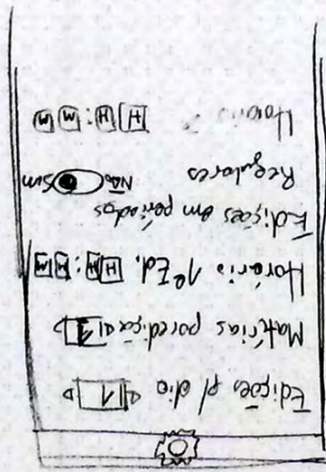 Edições p/ dia ◁ 1 ▷
Matérias por edição ◁ 1 ▷
Horário 1ª Ed. HH:MM
Edições em períodos
Regulares Não Sim
Horário HH:MM